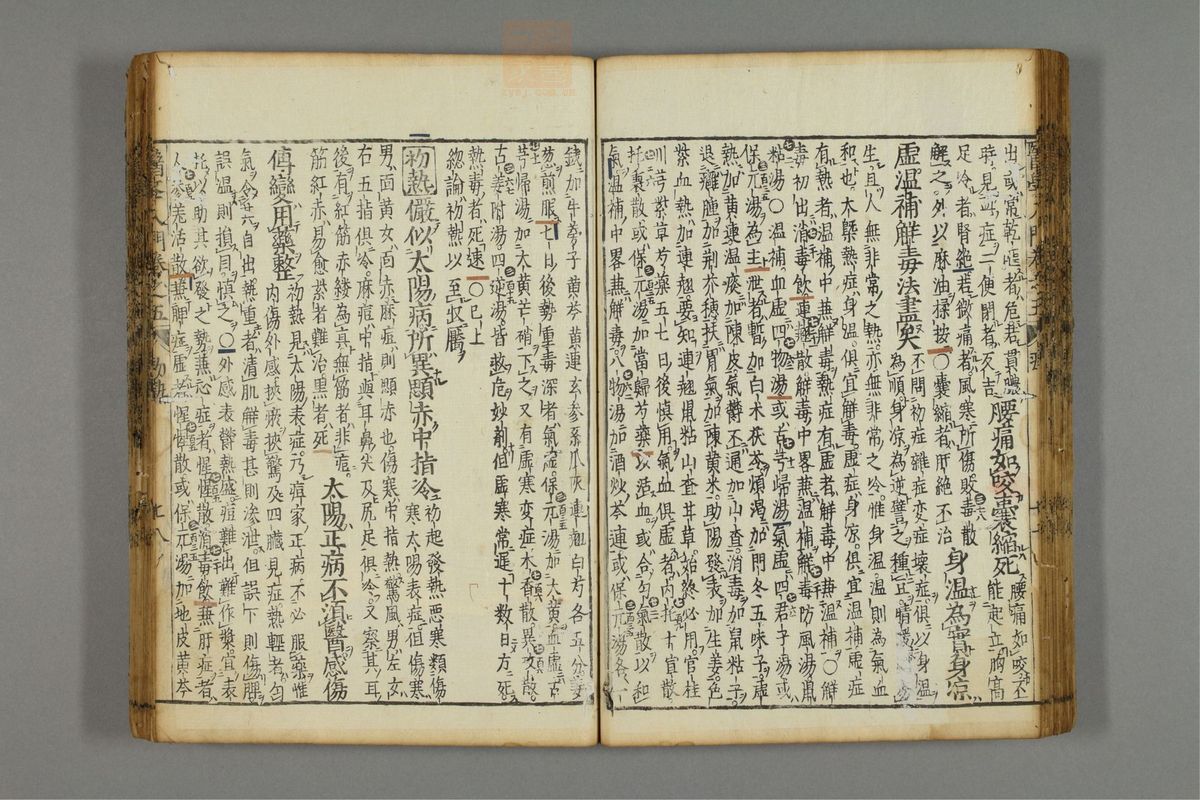 出或常乾嘔者危若胃膿
時見此症二便閉者反吉
足冷者腎絶若欲痛者風寒所傷敗毒散
解之外以麻油揉按〇囊縮者肝絶不治
腰痛如咬囊縮死
腰痛如咬不能起立胸高
身溫為寶身凉
虛溫補解毒法盡矣
不問初症雜症變症壞症俱以身溫
為順身凉為逆譬之種豆晴
生且人無非常之熱亦無非常之冷惟身溫則為氣血
和也大槩熱症身溫俱宜解毒虛症身凉俱宜溫補虛症
有熱者溫補中兼解毒熱症有虛者解毒中兼溫補〇解
毒初出消毒飲連翹散解毒中畧兼溫補解毒防風湯鼠
粘湯〇溫補血虛四物湯或古芎歸湯氣虛四君子湯或
保元湯為主泄者暫加白术茯苓煩渴加門冬五味子虛
熱加黃連溫痰加陳皮氣鬱不通加山查消毒加鼠粘子
退腫加荊芥穗扶胃氣加陳黃米助陽發表加生姜色
紫血熱加連翹要知連翹鼠粘山查甘草始終必用官桂
川芎紫草芍藥五七日後慎用氣血俱虛者內托十宣散
托裏散或保元湯加當歸芍藥以活血或合勻氣散以和
氣溫補中畧兼解毒八物湯加酒炒芩連或保元湯各
錢加牛旁子黃芩黃連玄參糸瓜灰連翹白芍各五分姜
葱煎服七日後勢重毒深者氣虛保元湯加大黃血虛古
芎歸湯加大黃芒硝下之又有虛寒變症木香散異攻散
古姜附湯四逆湯皆救危妙劑但虛寒常遲十數日方死
熱毒者死速〇已上
總論初熱以至收靨
初熱儼似太陽病所異顋赤中指冷
初起發熱惡寒類傷
寒太陽表症但傷寒
男面黃女面赤痲症則顋赤也傷寒中指熱驚風男左女
右五指俱冷痲痘中指與耳鼻尖及尻足俱冷又察其耳
後有紅筋赤縷為真無筋者非痘
筋紅赤易愈紫者難治黑者死
太陽正病不須醫感傷
傳變用藥整
初熱見太陽表症乃痘家正病不必服藥惟
內傷外感挾痰挾驚及四臟見症熱輕者勻
氣令其自出熱重者清肌解毒甚則滲泄但誤下則傷脾
誤溫則損目慎之〇外感表鬱熱盛痘難出難作漿宜表
托以助其欲發之勢兼心症者惺惺散消毒飲兼肝症者
人參羌活散兼脾症虛者惺惺散或保元湯加地皮黃芩